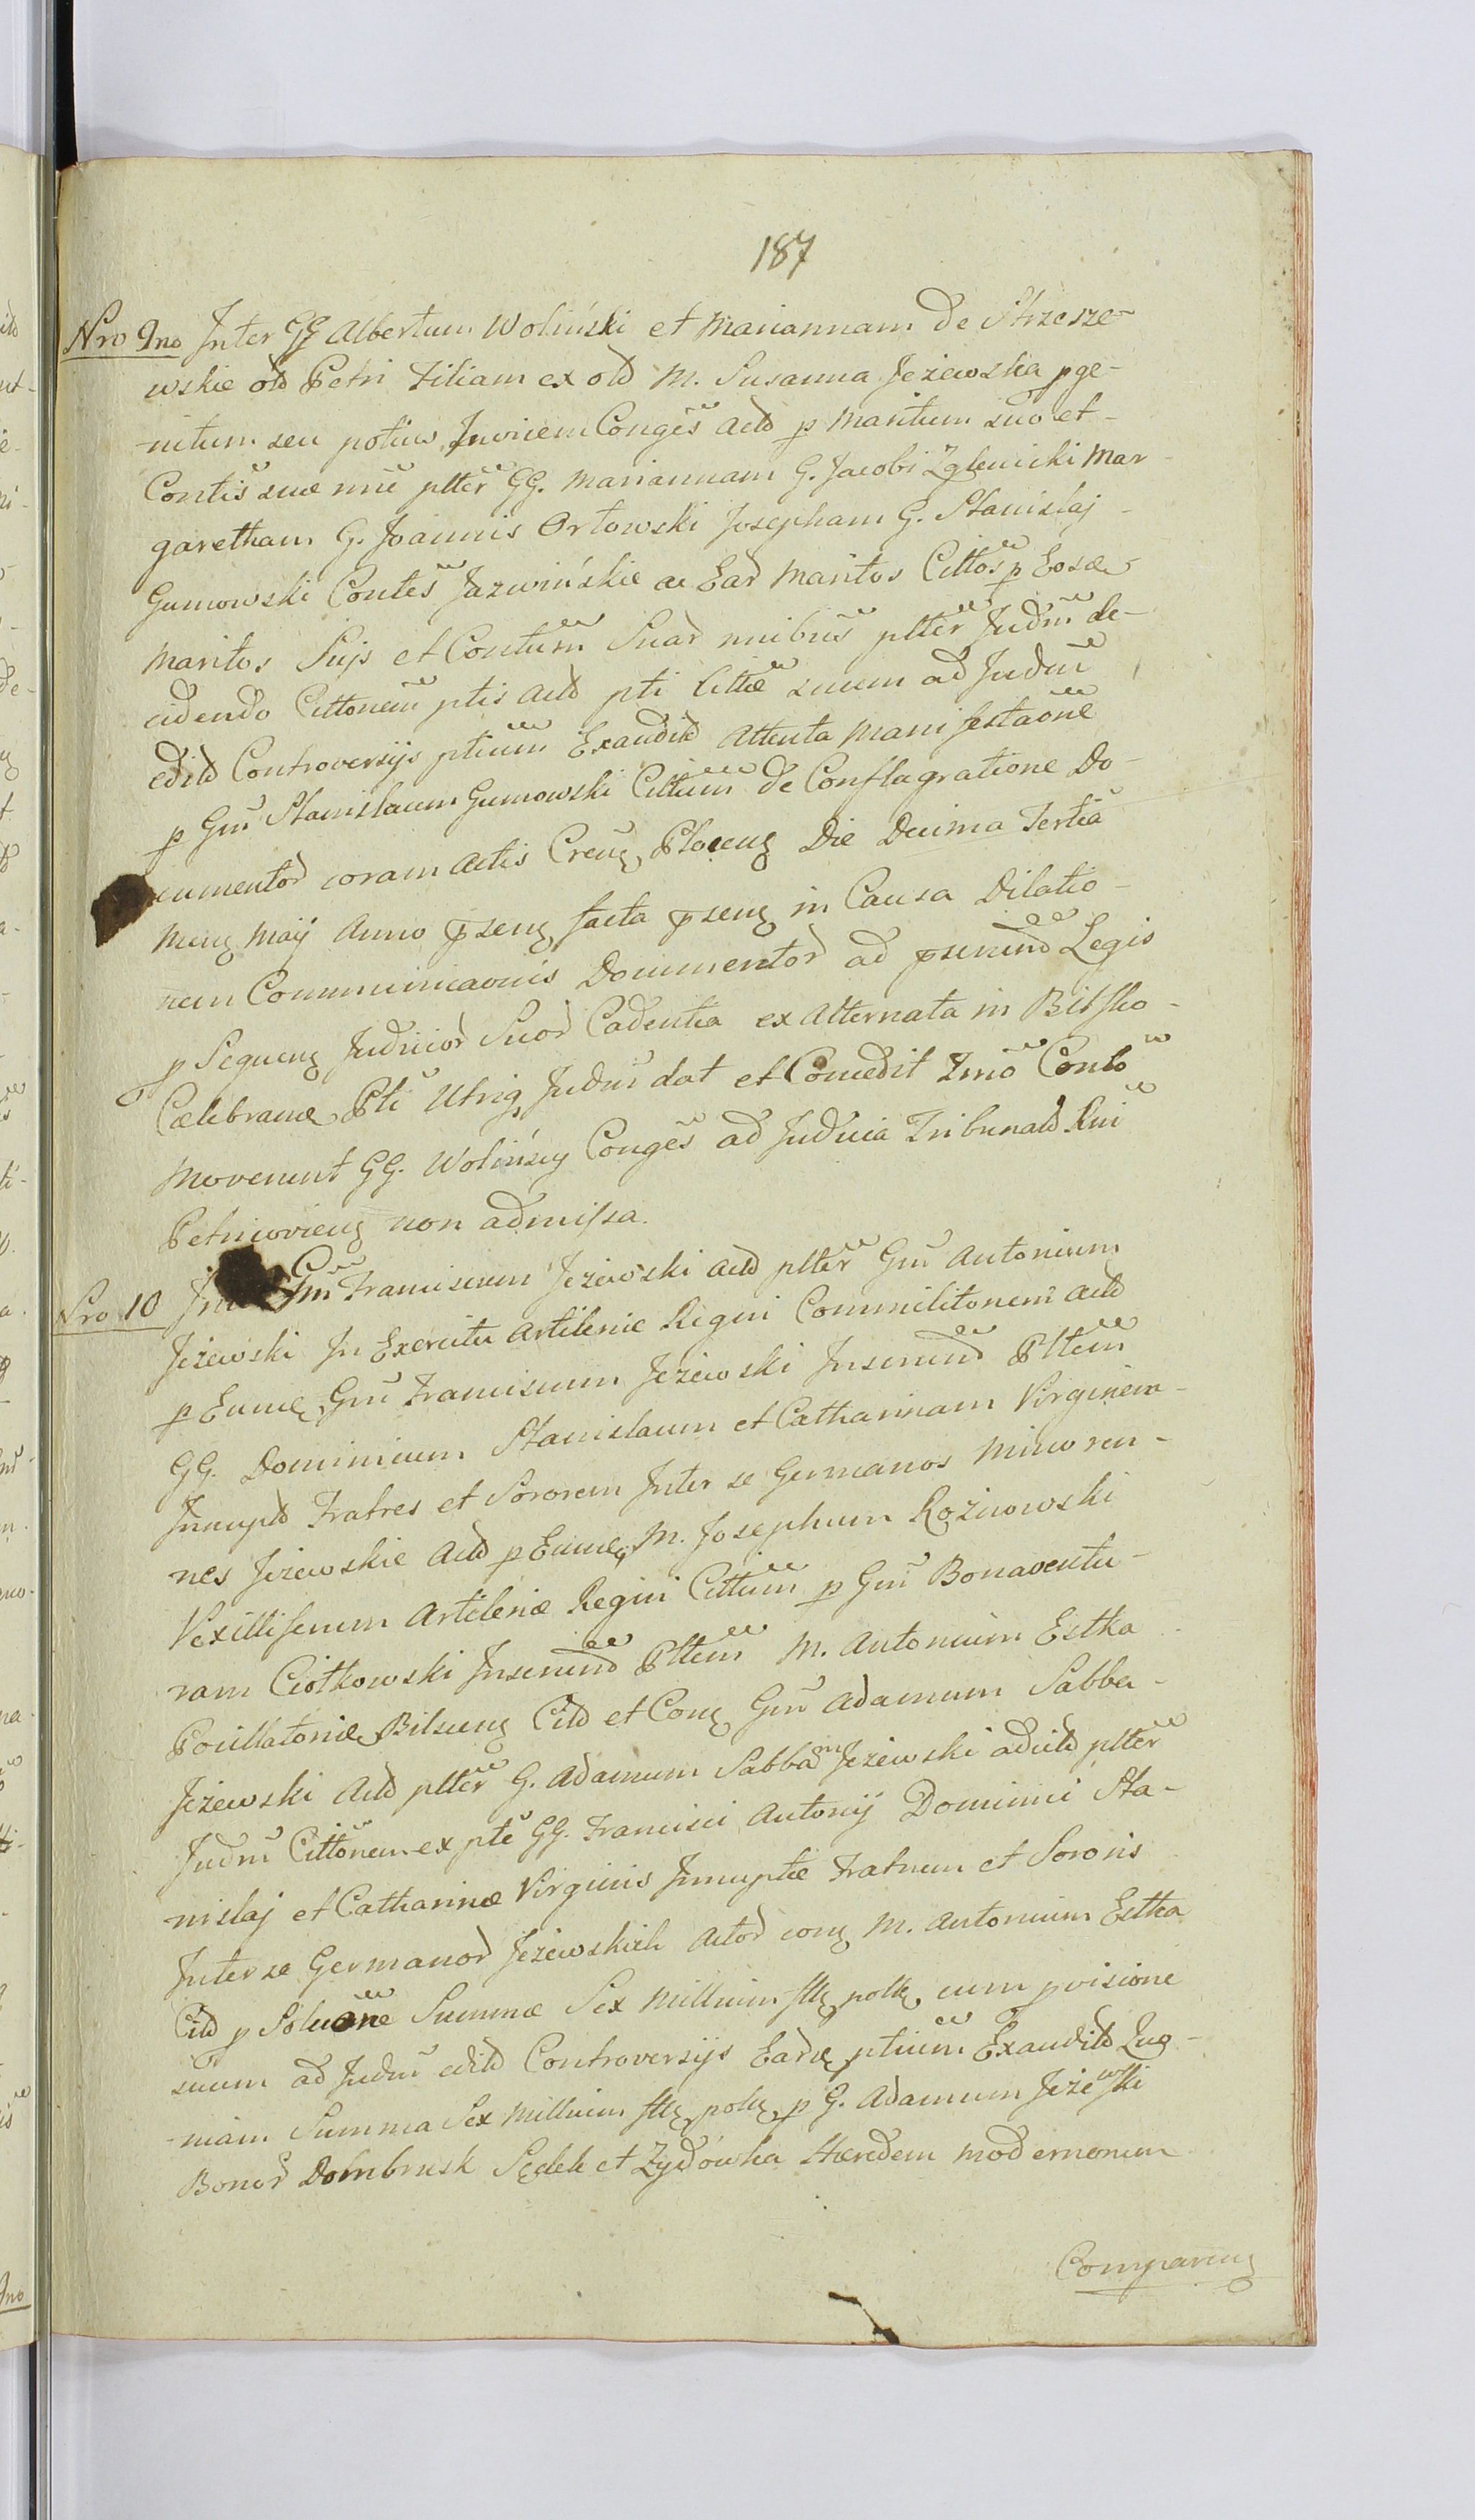 187
Nro 9no Inter GG Albertum Woliński et Mariannam de Strzesze-
wskie old Petri Filiam ex old M. Susanna Jeżewska pge-
nitum seu potius Invicem Conges Actd p Maritum suo et
Contis suae nne plter GG. Mariannam G. Jacobi Zglenicki Mar-
garetham G. Joannis Orłowski Josepham G. Stanislaj
Gumowski Contes Jazwińskie ac Eard Maritos Cittos p Eosdem
Maritos Sujs et Contum Suard nnibus plter Judm de-
cidendo Cittonem ptis Actd pti Cittae suum ad Judm
editd Controversijs ptium Exauditd Attenta Manifestaone
p Gm Stanislaum Gumowski Cittum de Conflagratione Do-
cumentord coram Actis Crens Plocens Die Decima Tertia
Mens Maij Anno psens facta psens in Causa Dilatio-
nem Communicaonis Documentord ad psmnd Legis
p Sequens Judiciord Suord Cadentia ex Alternata in Bilsko
Celebrane Pti Utrig Judm dat et Concedit Zmo Conto
Movenint GG. Wolińscy Conges ad Judicia Tribunald Rni
Petricoviens non admissa.
Nro 10 Gm Franciscum Jeżewski Actd plter Gm Antonium
Jeżewski In Exercitu Artilerie Regni Commilitonem Actd
p Eunde Gm Franciscum Jeżewski Insmnd Pltem
GG. Dominicum Stanislaum et Catharinam Virginem
Innuptd Fratres et Sororem Inter se Germanos Minoren-
nes Jeżewskie Actd p Eunde M. Josephum Rożnowski
Vexilliferum Artileriae Regni Cittum p Gm Bonaventu-
ram Ciołkowski Insmnd Pltem M. Antonium Estka
Pocillatorie Bilscens Citd et Cons Gm Adamum Sabba-
Jeżewski Actd plter G. Adamum Sabbam Jeżewski adcitd plter
Judm Cittonem ex pte GG. Francisci Antonij Dominici Sta-
nislaj et Catharinae Virginis Innuptae Fratrum et Sororis
Inter se Germanord Jeżewskich Actord cons M. Antonium Estka
Citd p Soluone Summae Sex Millium flls polls cum pvisione
suum ad Judm editd Controversijs Eard ptium Exauditd Quo-
niam Summa Sex Millium flls polls p G. Adamum Jeżewski
Bonord Dombrusk Sędek et Zydówka Haeredem modernorum
Comparens